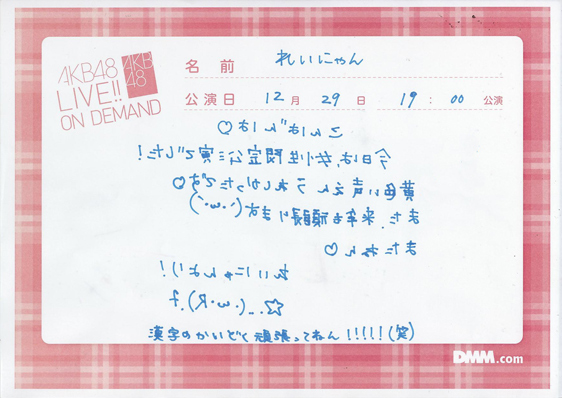 AKB48
LIVE!!
ON DEMAND
AKB
48
名前 れいにゃん
公演日 12月 29日 19:00 公演
こんばんは♡
今日は、女性限定公演でした!
黄色い声えんうれしかったです♡
また、来年も頑張ります
またねん♡
れいにゃんより!
漢字のかいどく頑張ってねん!!!!!(笑)
DMM.com